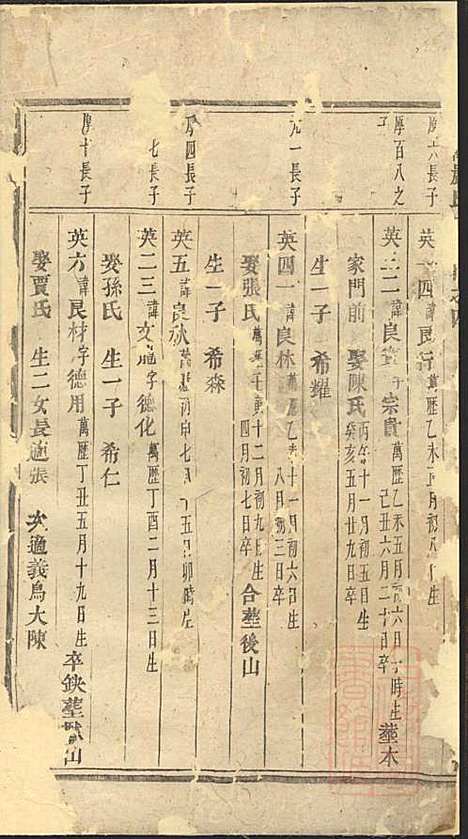 厚六長子
英 四諱良 萬曆乙未 月初 生
厚百八之子
英 二諱良 字宗貴 萬曆乙未五月初六日 時生 己丑六月二十 日卒 塟木
家門前 娶陳氏 丙午十一月初五日生 癸亥五月 日卒
生一子 希耀
元一長子
英四一諱良林 萬曆乙 十一月初六日生 八月初三日卒
娶張氏 萬曆 十二月初九日生 四月初七日卒 合塟後山
生一子 希森
厚四長子
英五諱良秋 萬曆丙申七月 五日卯時生
七長子
英二三諱文 字德化 萬曆丁酉二月十三日生
娶孫氏 生一子 希仁
厚十長子
英六諱良材字德用 萬曆丁丑五月十九日生 卒缺塟 山
娶賈氏 生二女長適張 次適義烏大陳